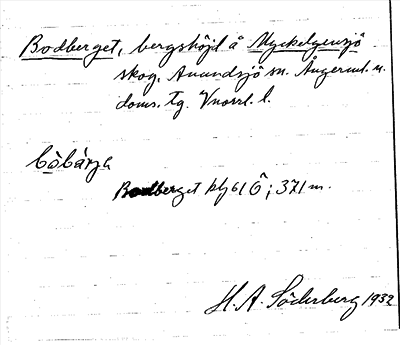 Bodberget, bergshöjd å Myckelgensjö
skog, Anundsjö sn. Ångerml. n.
doms. tg. Vnorrl. l.
bòbárja
Bodberget blj 61 Ö; 371 m.
H. A. Söderberg 1932